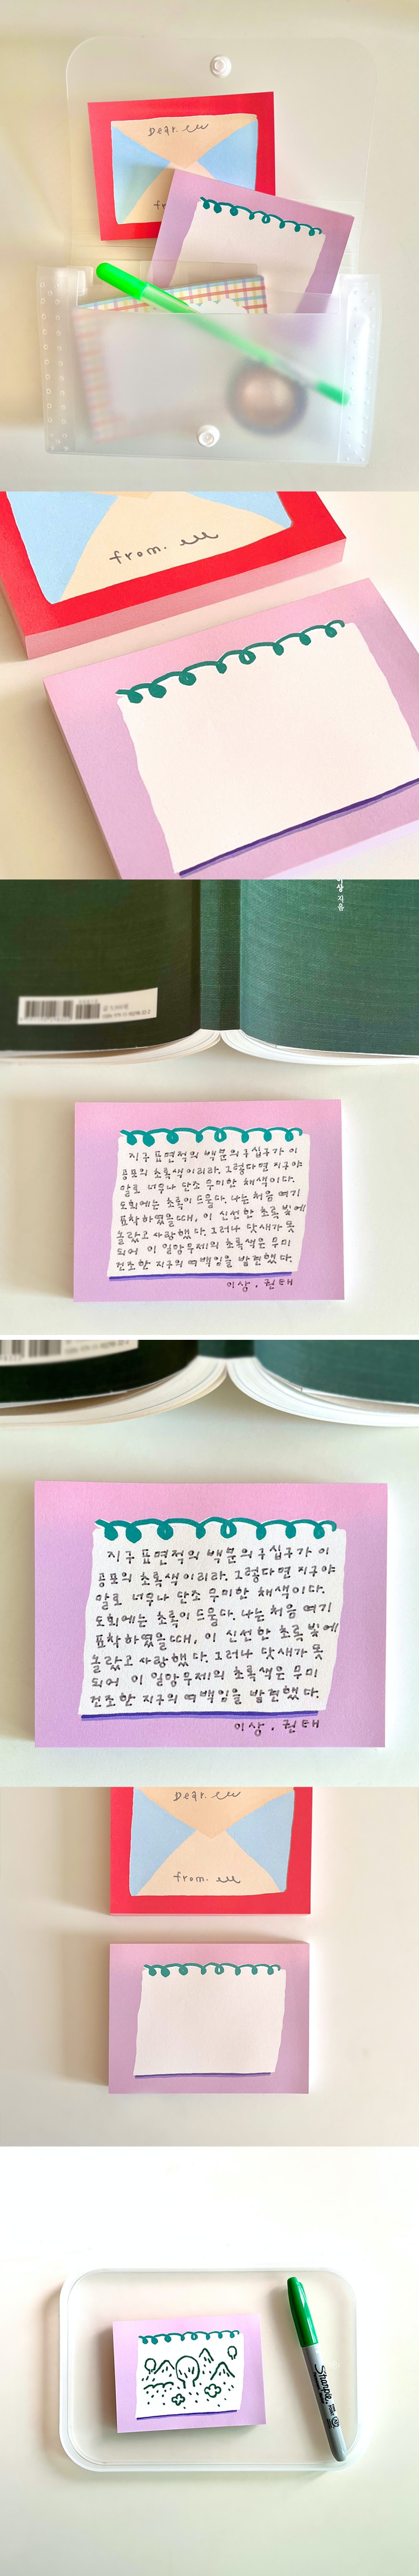 Dear.
from.
이상 지음
지구 표면적의 백분의 구십구가 이
공포의 초록색이리라. 그렇다면 지구야
말로 너무나 단조 무미한 채색이다.
도회에는 초록이 드물다. 나는 처음 여기
표착하였을 때, 이 신선한 초록 빛에
놀랐고 사랑했다. 그러나 닷새가 못
되어 이 일망무제의 초록색은 무미
건조한 지구의 여백임을 발견했다.
이상. 권태
지구 표면적의 백분의 구십구가 이
공포의 초록색이리라. 그렇다면 지구야
말로 너무나 단조 무미한 채색이다.
도회에는 초록이 드물다. 나는 처음 여기
표착하였을 때, 이 신선한 초록 빛에
놀랐고 사랑했다. 그러나 닷새가 못
되어 이 일망무제의 초록색은 무미
건조한 지구의 여백임을 발견했다.
이상. 권태
Dear.
from.
Sharpie